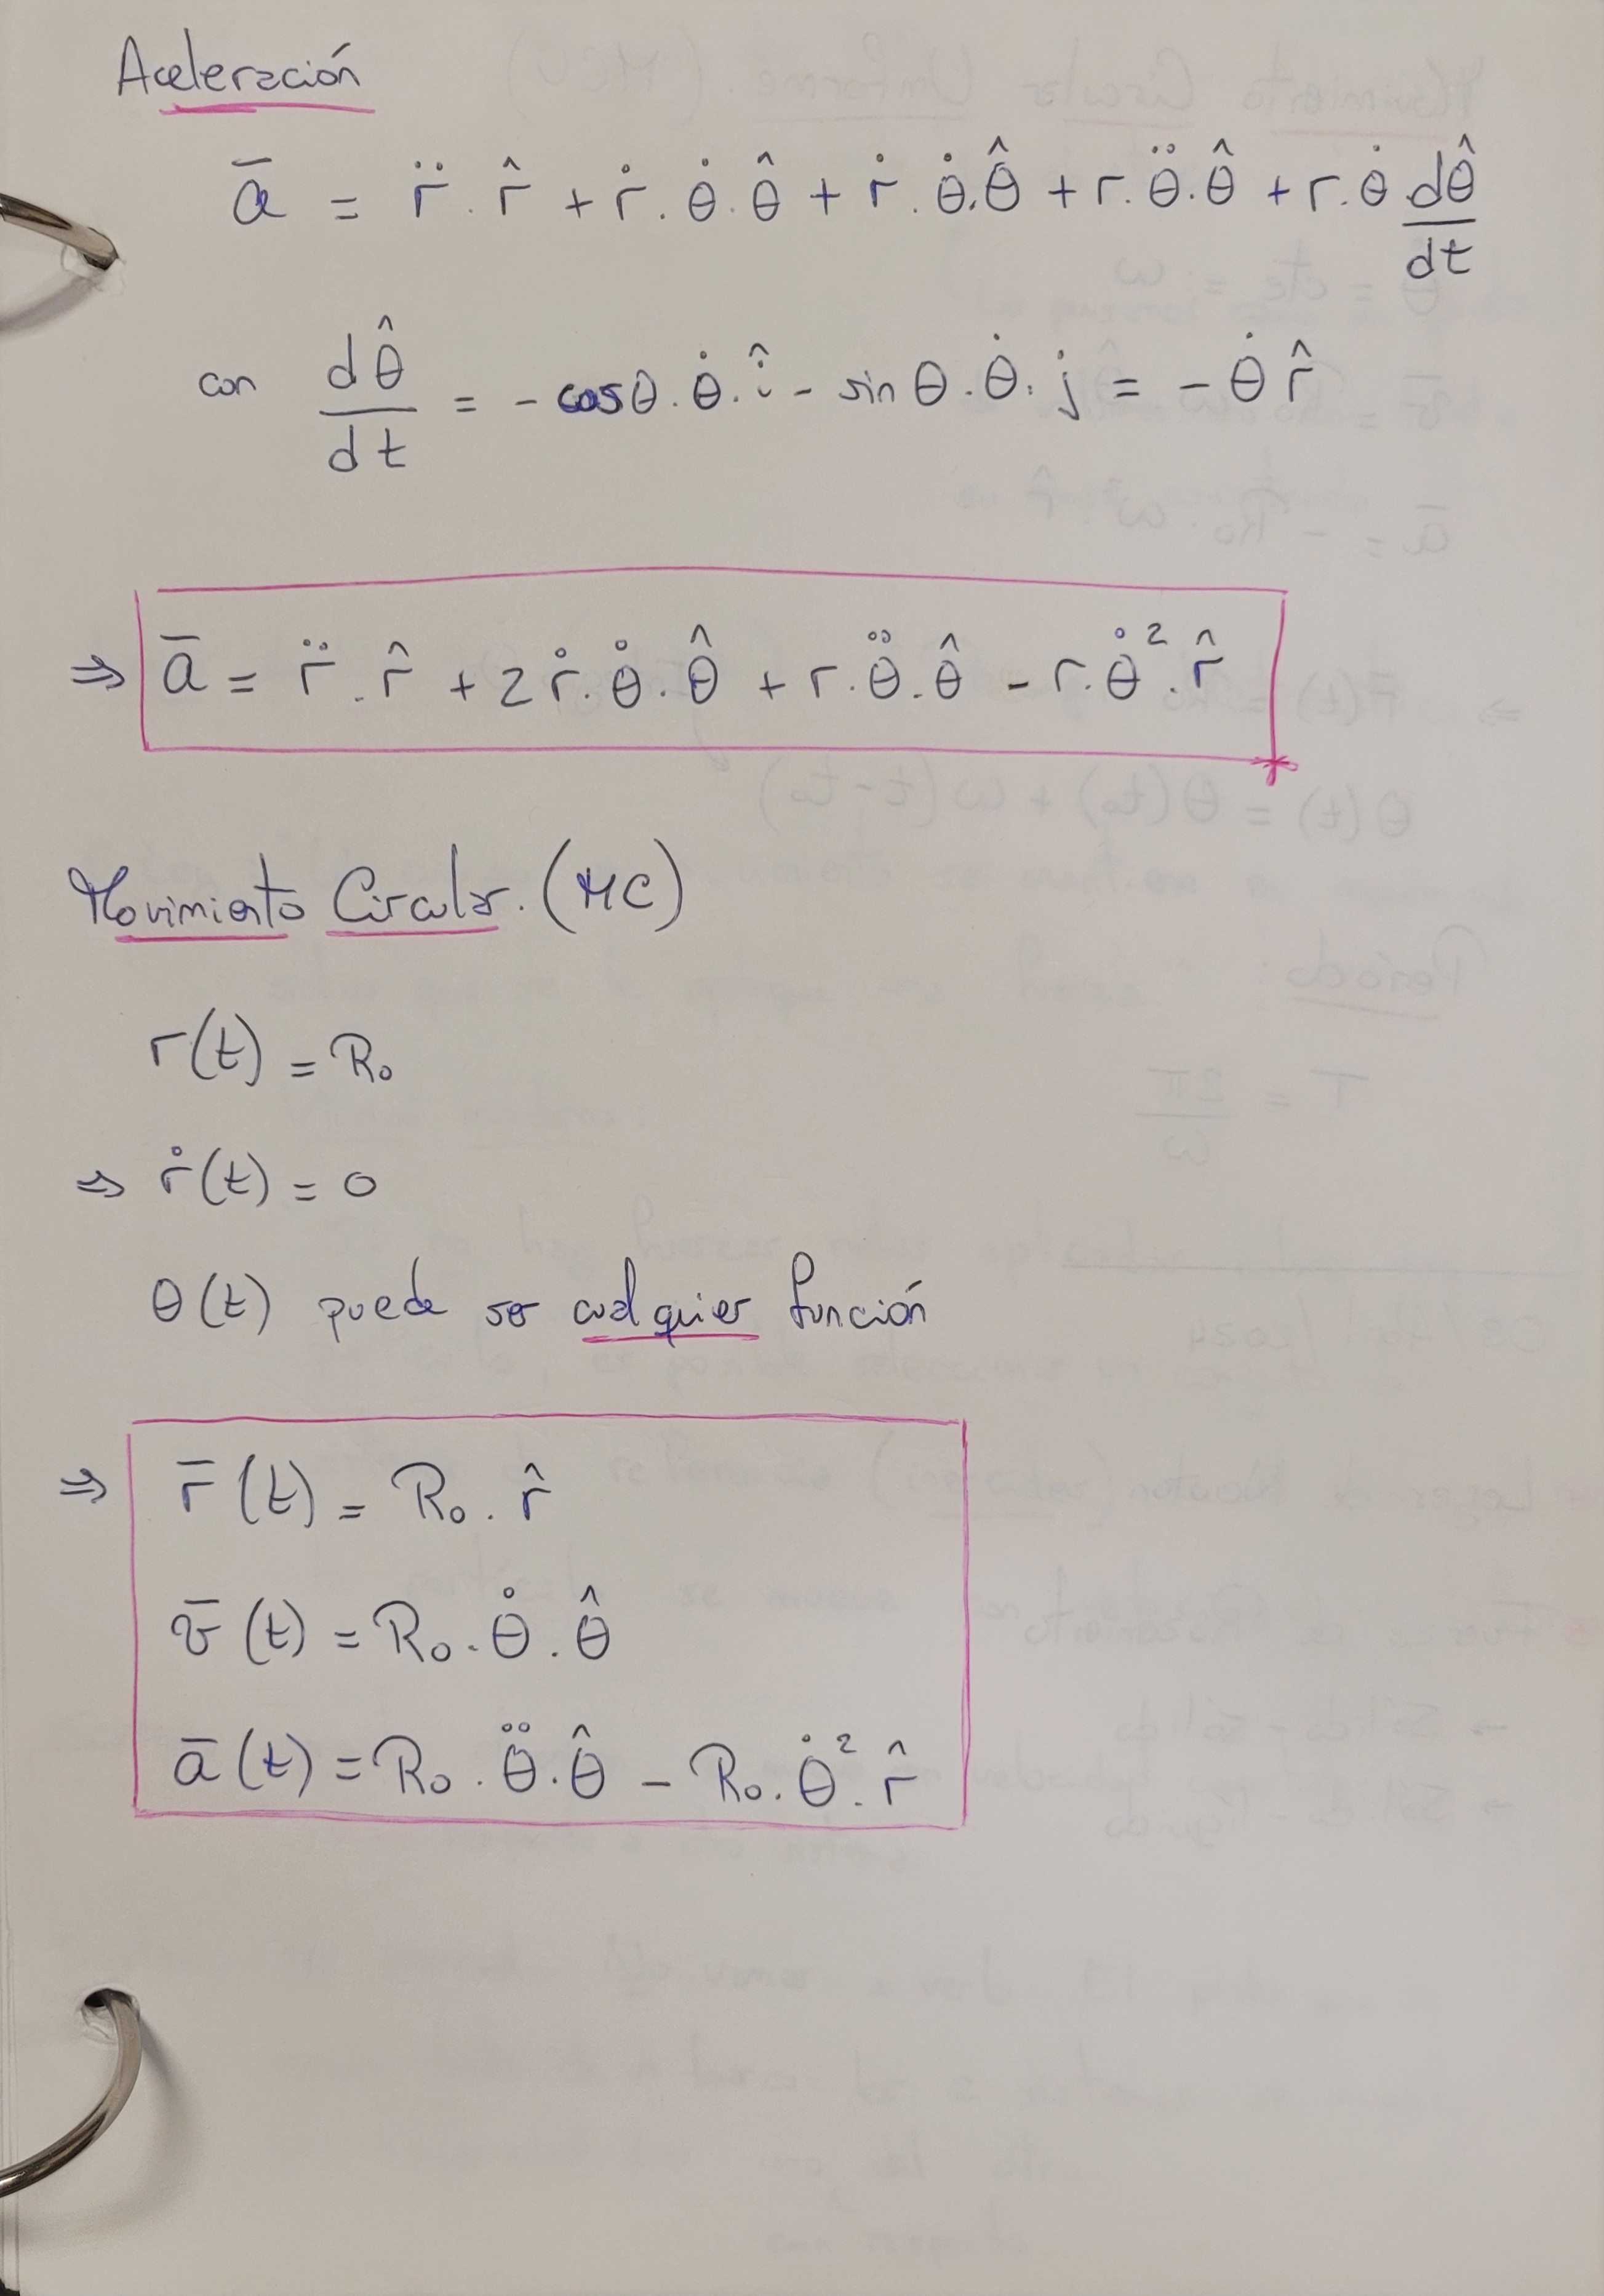 Aceleración
a̅ = r̈ . r̂ + ṙ . θ̇ . θ̂ + ṙ . θ̇ . θ̂ + r . θ̈ . θ̂ + r . θ̇ dθ̂/dt
con dθ̂/dt = - cosθ . θ̇ . î - sin θ . θ̇ . j = - θ̇ r̂
⇒ a̅ = r̈ . r̂ + 2 ṙ . θ̇ . θ̂ + r . θ̈ . θ̂ - r . θ̇² . r̂
Movimiento Circular. (MC)
r(t) = R₀
⇒ ṙ(t) = 0
θ(t) puede ser cualquier función
⇒ r̅(t) = R₀ . r̂
v̅(t) = R₀ . θ̇ . θ̂
a̅(t) = R₀ . θ̈ . θ̂ - R₀ . θ̇² . r̂